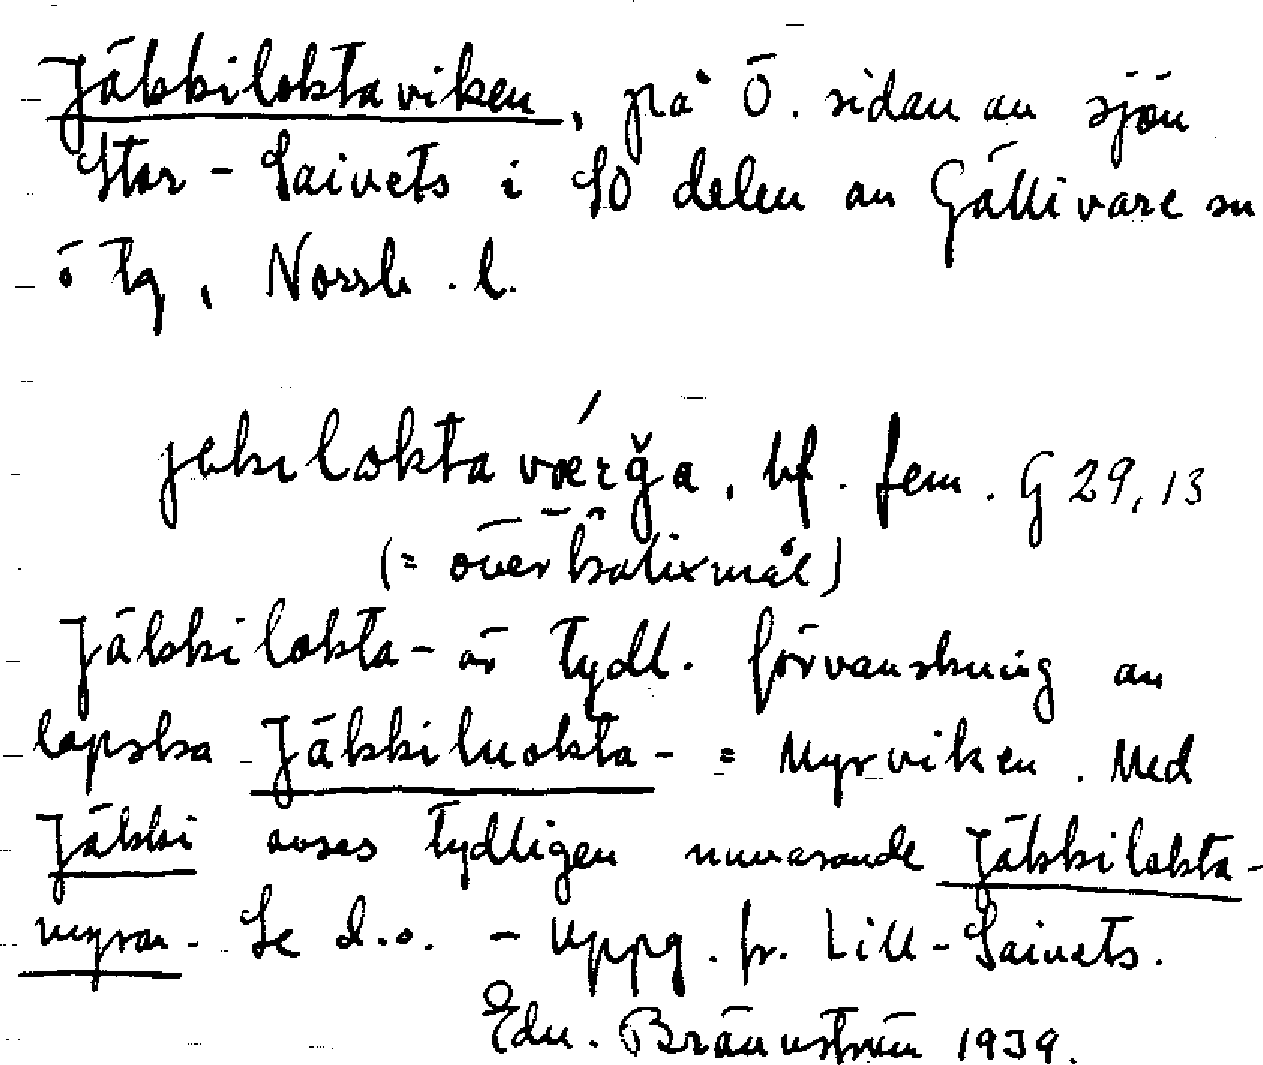 Jäkkiloktaviken, på Ö. sidan av sjön
Stor-Saivets i SO delen av Gällivare sn
o tg, Norrb. l.
jekilokta værğa, bf. fem. G 29,13
(= överkalixmål)
Jäkkilokta- är tydl. förvanskning av
lapska Jäkkiluokta- = Myrviken. Med
Jäkki avses tydligen nuvarande Jäkkilokta-
myran. Se d.o. - Uppg. fr. Lill-Saivets.
Edv. Brännström 1939.